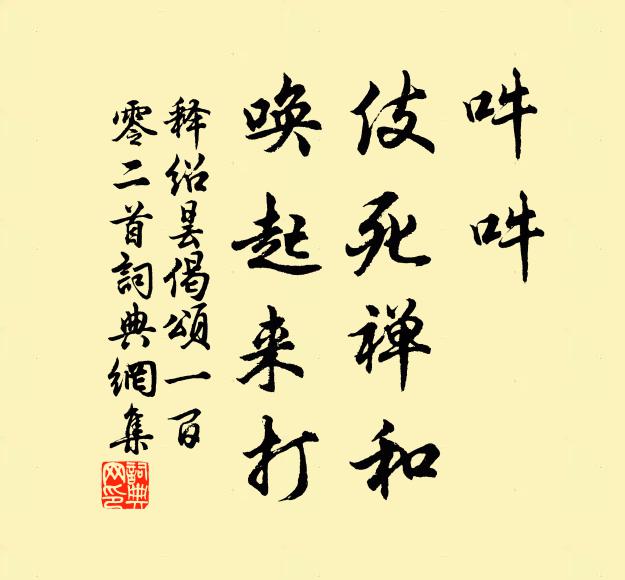 吽吽
伎死禅和
唤起来打
释绍昙偈颂一百
零二首詞典網集
詞典网印